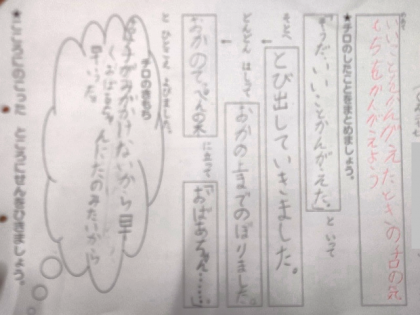 いいことかんがえたときのチロの気
もちをかんがえよう
★チロのしたことをまとめましょう。
「そうだ、いいことかんがえた。」といって
そとへ とび出していきました。
どんどん はしって おかの上までのぼりました。
おかのてっぺんの木 に立って 「おばあちゃあん……」
と ひとこえ よびました。
チロのきもち
みかけないから早
くおばあちゃんにたのみたいから
★こころにのこった ところにせんをひきましょう。